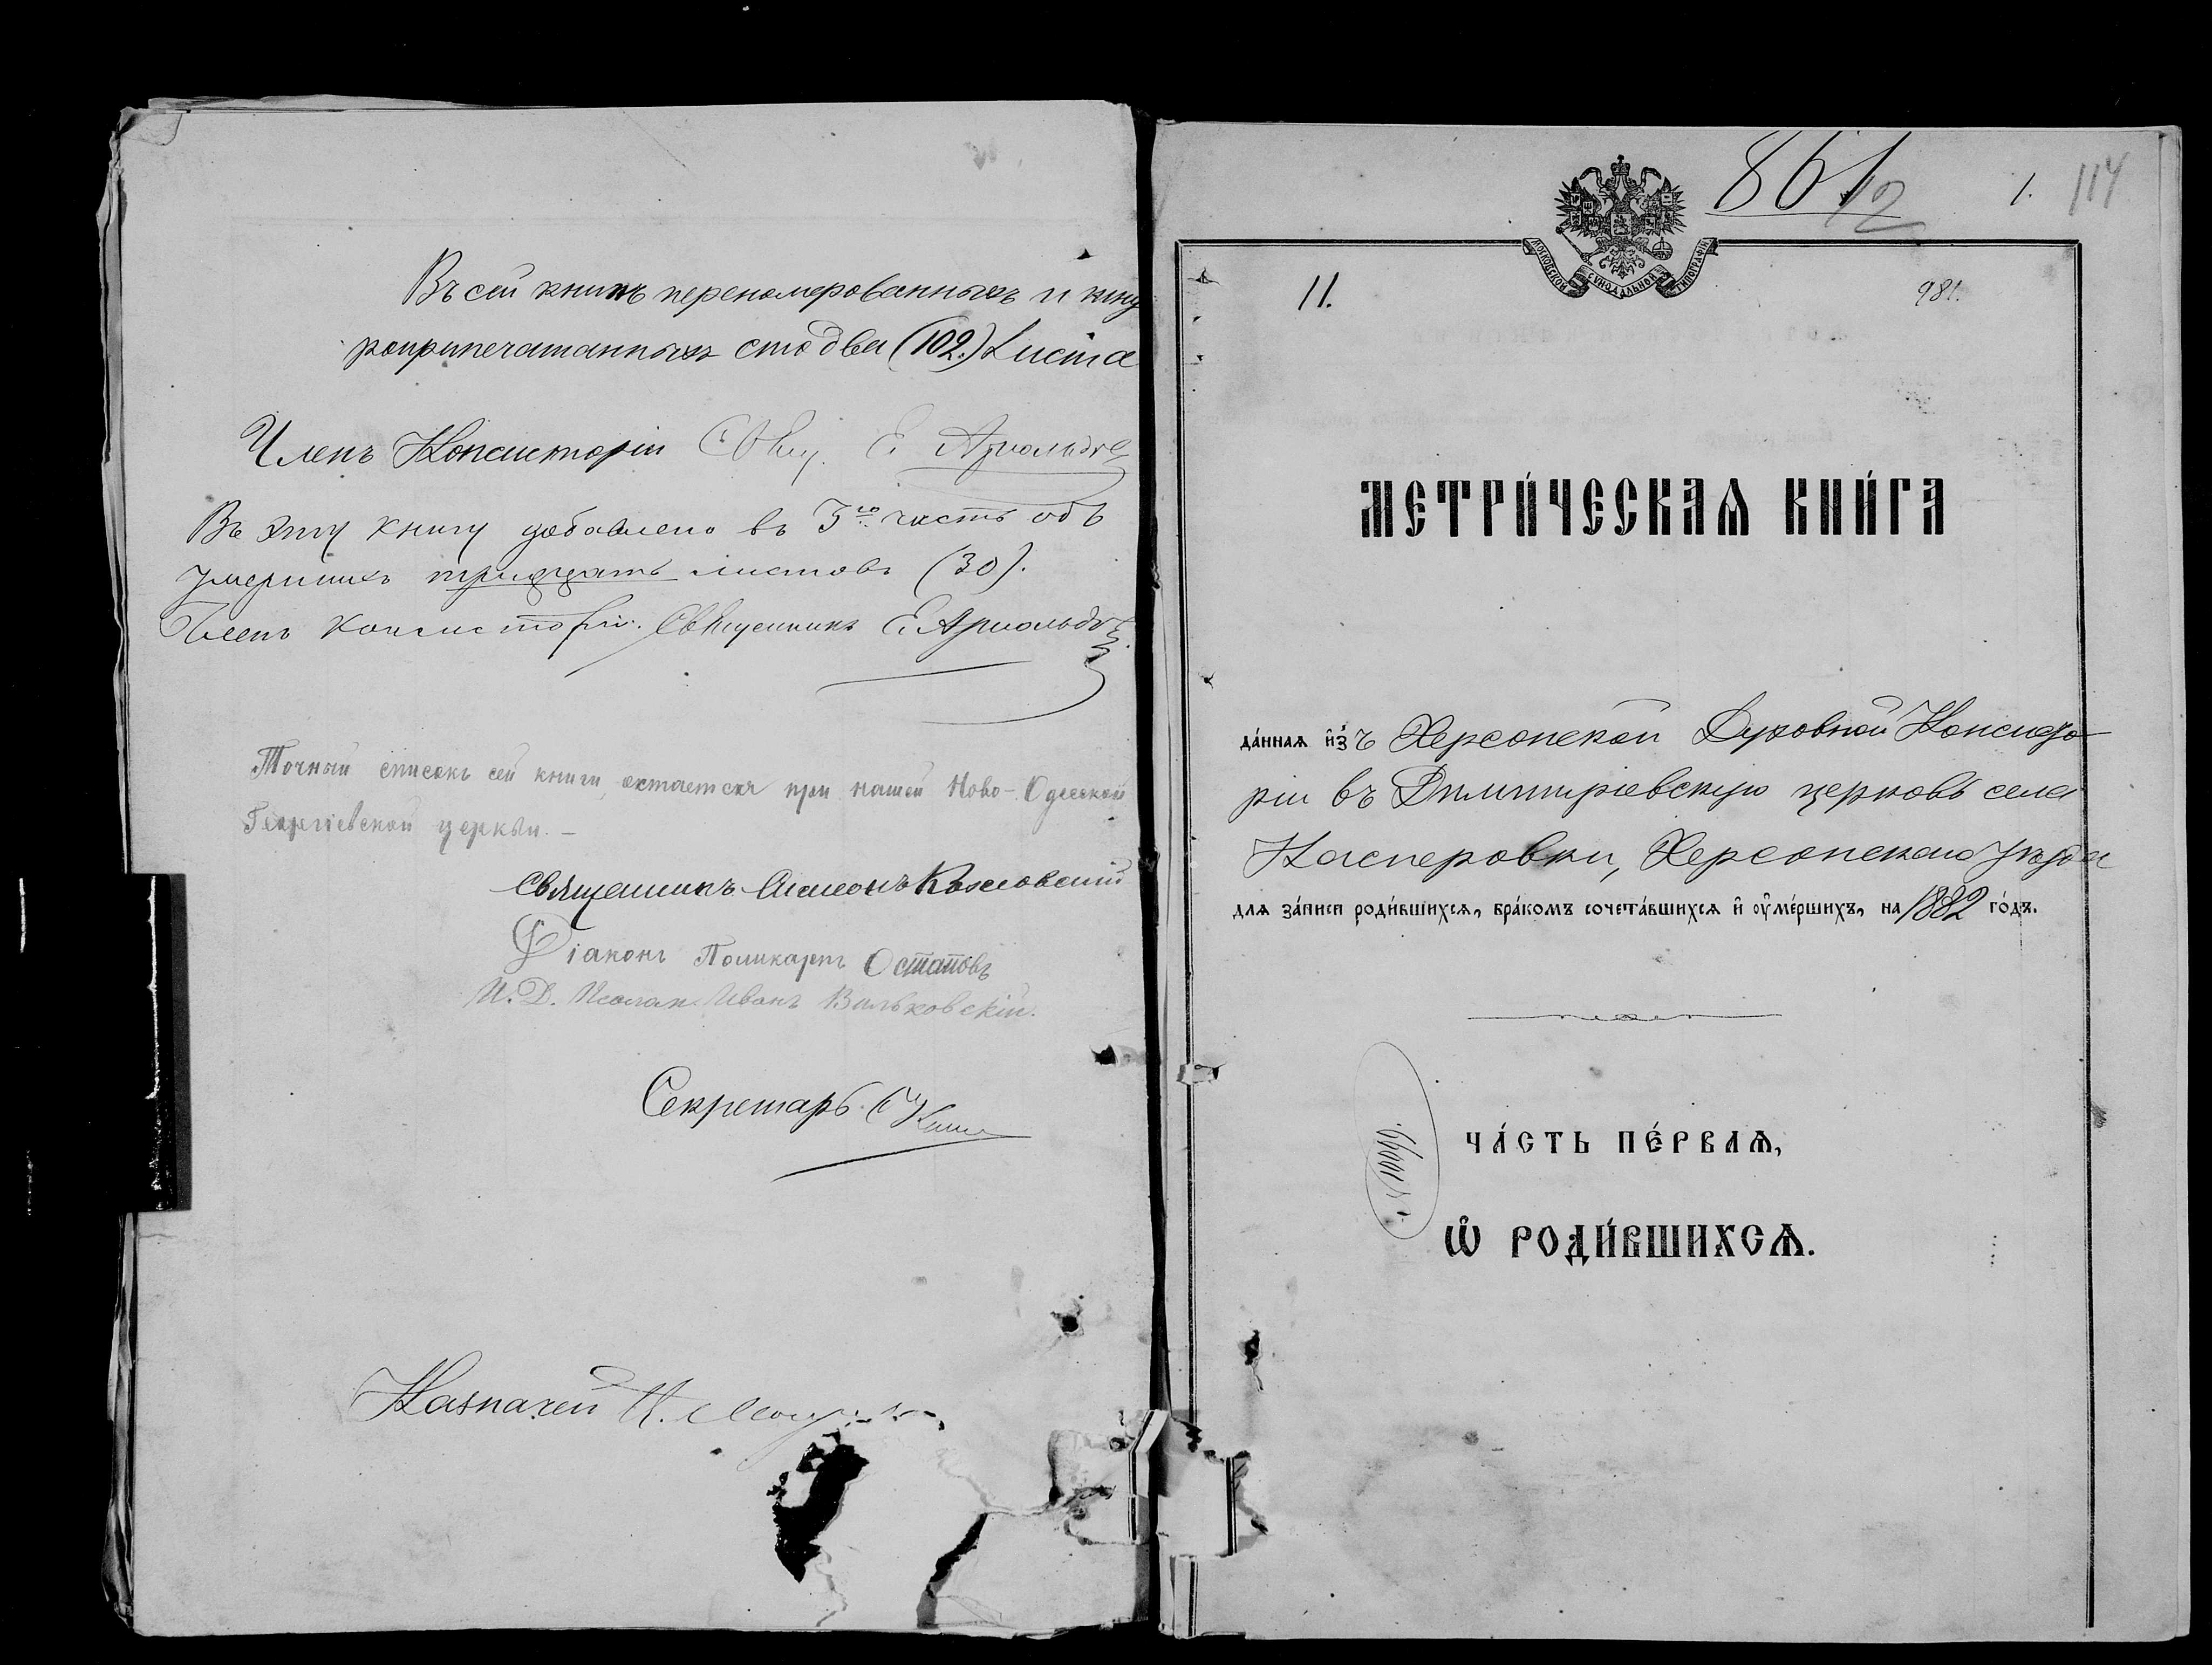 Въ сей книгѣ переномерованныхъ и шну
роприпечатанныхъ сто два (102.) листа
Членъ Консисторіи Свящ. Е. Арнольдовъ
Въ эту книгу добавлено въ 3ю часть объ
умершихъ тридцать листовъ (30).
Членъ Консисторіи. Священникъ Е. Арнольдовъ
Точный списокъ сей книги, остается при нашей Ново-Одесской
Георгіевской церкви. –
Священникъ Симеонъ Козловскій
Діаконъ Поликарпъ Остаповъ
И. Д. Псалом. Иванъ Вильковскій.
Секретарь
Казначей Н.
861
12
1. 114
МОСКОВСКОЙ СѴНОДАЛЬНОЙ ТИПОГРАФІИ
11.
981.
МЕТРИ́ЧЕСКАѦ КНИ́ГА
да́ннаѧ и҆з̾ъ Херсонской Духовной Консисто
ріи въ Димитріевскую церковь села
Касперовки, Херсонскаго уѣзда
длѧ за́писи роди́вшихсѧ, бра́комъ сочета́вшихсѧ и҆ ᲂу҆ме́ршихъ, на 1882 го́дъ.
ЧА́СТЬ ПЕ́РВАѦ,
Ѡ҆ РОДИ́ВШИХСѦ.